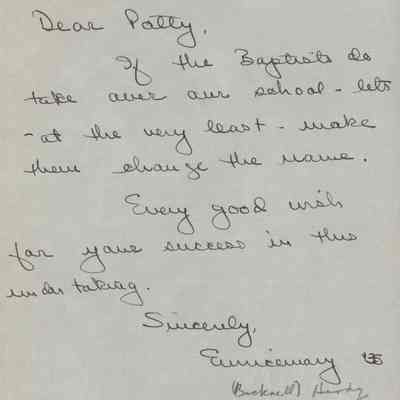 Dear Patty,
If the Baptists do
take over our school - lets
- at the very least - make
them change the name.
Every good wish
for your success in this
undertaking.
Sincerely,
Eunicemary '35
(Bucknell) Hardy